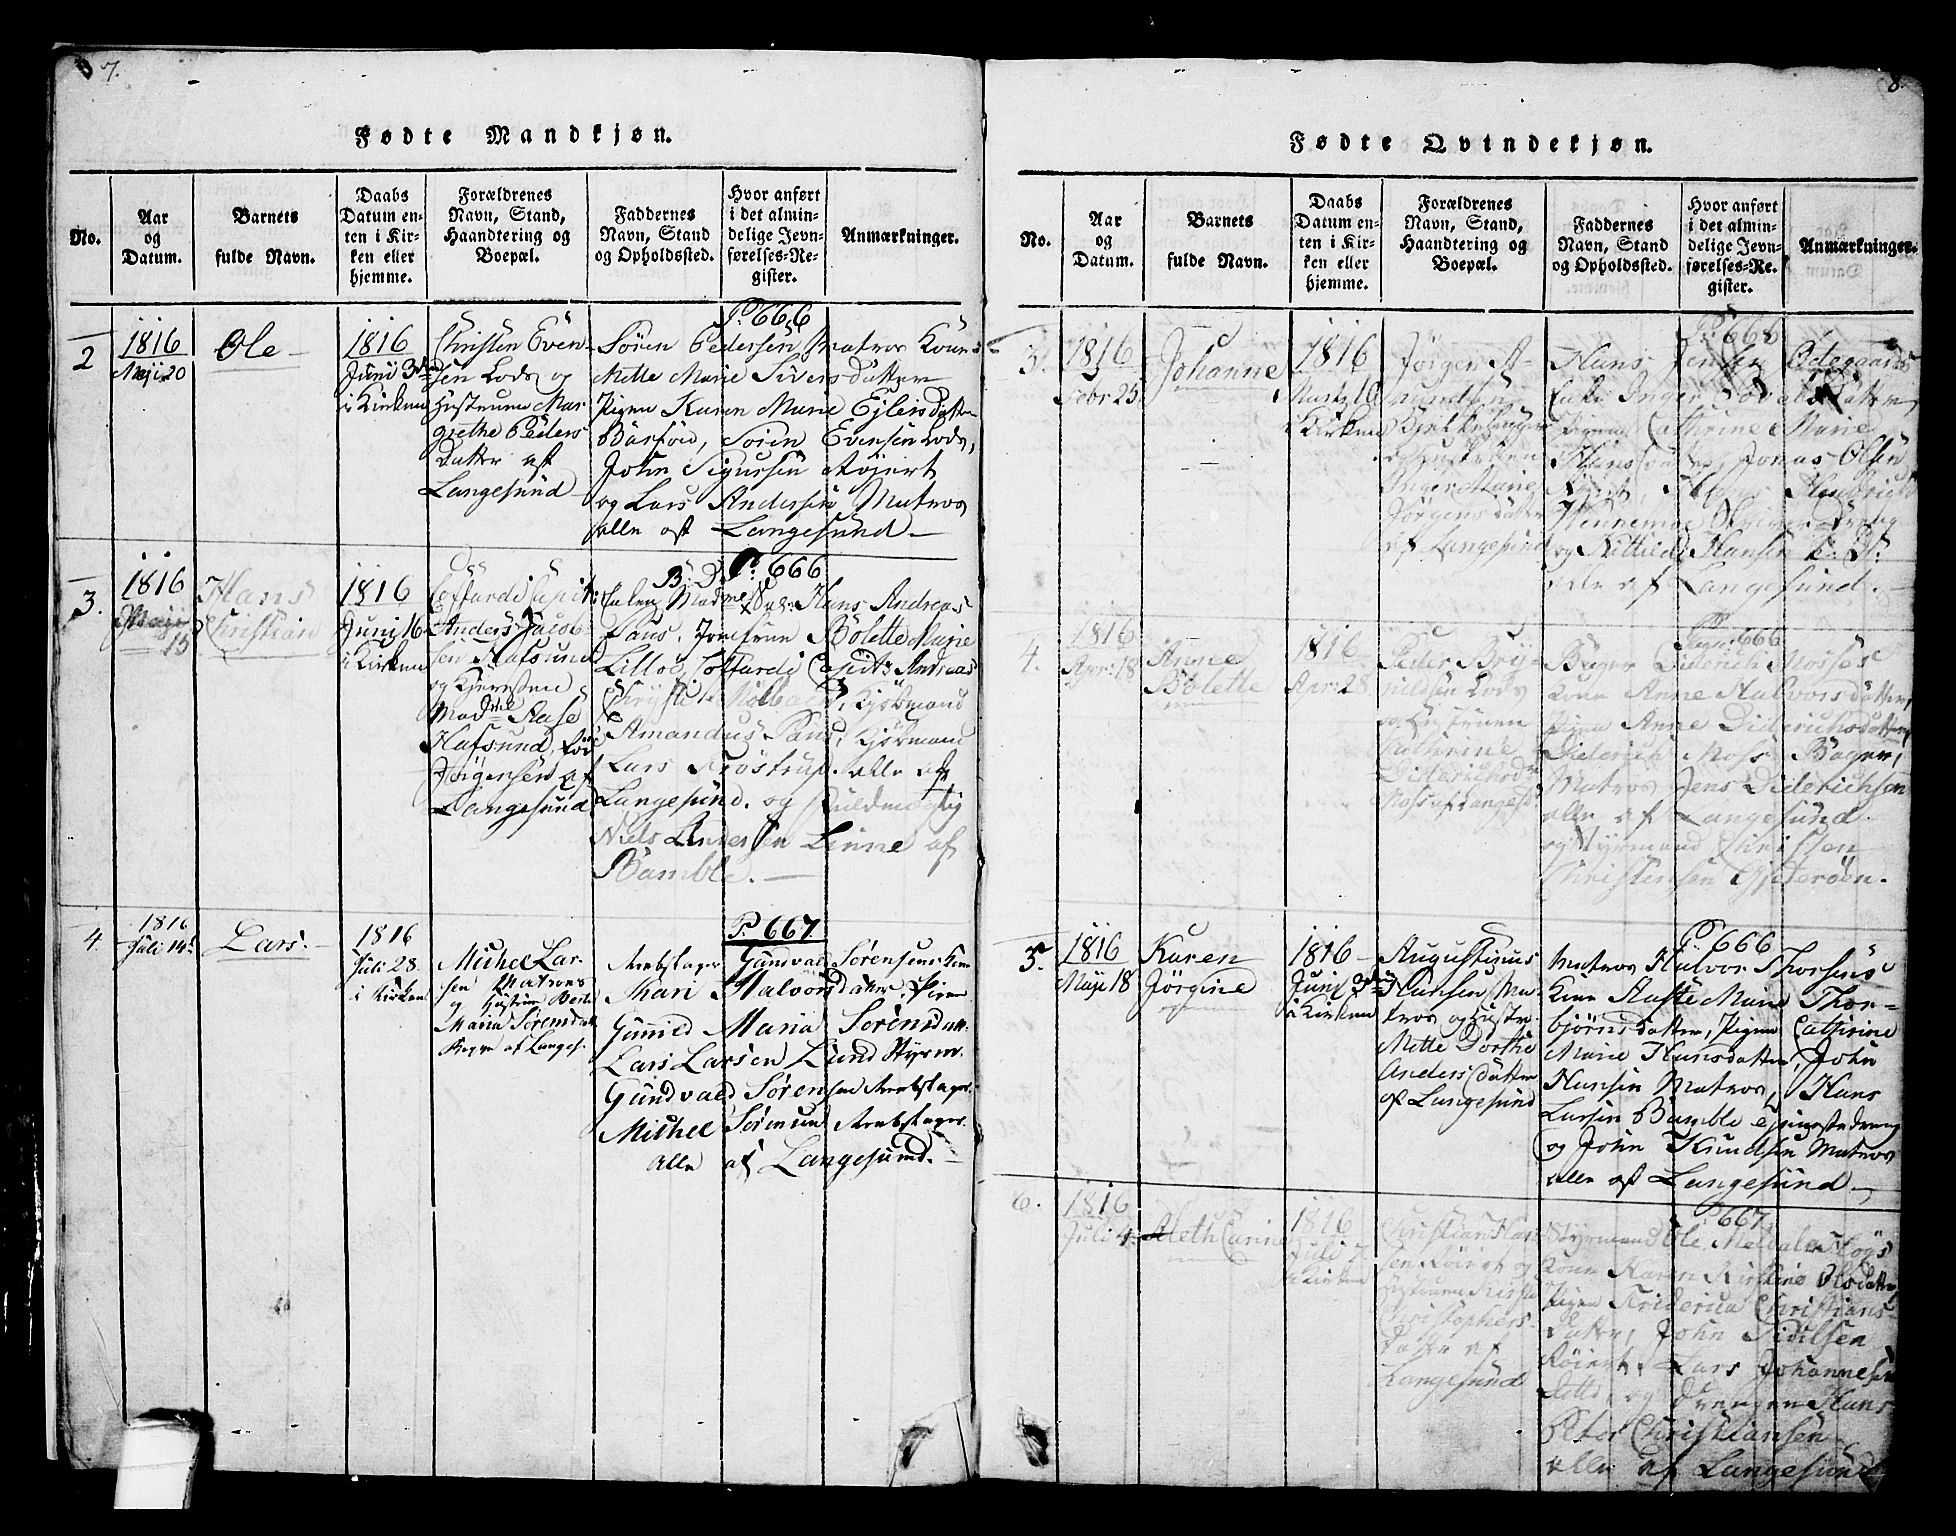 7.
Fødte Mandkjøn.
No.
Aar
og
Datum.
Barnets
fulde Navn.
Daabs
Datum en-
ten i Kir-
ken eller
hjemme.
Forældrenes
Navn, Stand,
Haandtering og
Boepæl.
Faddernes
Navn, Stand
og Opholdssted.
Hvor anført
i det almin-
delige Jevn-
førelses-Re-
gister.
Anmærkninger.
2
1816
Maji 20
Ole
1816
Juni 3
i Kirken
Christen Even-
sen Lods og
Hustrue Mar-
grethe Peders
Datter af
Langesund
P. 666
Søren Pedersen Matros Kone
Mette Marie Sivers Datter
Pigen Karen Marie Ejlersdatter
Søren Evensen Lods,
John
og Lars Andersen Matros
alle af Langesund
3.
1816
Maji
15
Hans
Christian
1816
Juni 16
i Kirken
Coffardi Capit:
Anders Jacob-
sen Hafsund
og Kjæresten
Aase
Hafsund, fød
Jørgensen af
Langesund
P. 666
Hans Andreas
Paus, Jomfrue Bolette Marie
Lilloe, Coffardi Capit: Andreas
Kjøbmand
Amandus Paus, Kjøbmand
Lars Trøstrup. alle af
Langesund. og Fuldmægtig
Niels Andersen Linne af
Bamble.
4
1816
Juli 14
Lars.
1816
Juli 28.
i Kirken
Michel Lar-
sen Matros
og Hustrue
Maria Sørensdatt.
af Langes.
P. 667
Arebstager Gundvald Sørensens Kone
Kari Halvorsdatter, Pigen
Gunild Maria Sørensdatt.
Lars Larsen Lund Styrm.
Gundvald Sørensen Arebstager.
Michel Sørensen Arebstager.
alle af Langesund.
8.
Fødte Qvindekjøn.
No.
Aar
og
Datum.
Barnets
fulde Navn.
Daabs
Datum en-
ten i Kir-
ken eller
hjemme.
Forældrenes
Navn, Stand,
Haandtering og
Boepæl.
Faddernes
Navn, Stand
og Opholdssted.
Hvor anført
i det almin-
delige Jevn-
førelses-Re-
gister.
Anmærkninger.
3.
1816
Febr: 25
Johanne
1816
Marty 10
i Kirken
Jørgen A-
mundsen
Inger Marie
Jørgensdatter
af Langesund
P. 666
Hans Jensen Ødegaards
Inger
Pigen Cathrine Marie
Jonas Olsen
og Kittild Hansen
alle af Langesund.
4.
1816
Apr: 18
Anne
Bolette
1816
Apr: 28
Peder Bryn-
juldsen Lods
og Hustruen
Cathrine
Diderichsdr
Moss af Langesd
666
Bager Diderich Mosses
Kone Anne Halvorsdatter,
Pigen Anne Diderichsdatter
Diderich Moss Bager,
Matros Jens Diderichsen
alle af Langesund
og Styrmand Christen
Christensen Gjeterøen.
5.
1816
Maji 18
Karen
Jørgine
1816
Juni 3
i Kirken
Augustinus
Hansen Ma-
tros og Hustr.
Mette Dorthe
Anders Datter
af Langesund
P. 666
Matros Halvor Thorsens
Kone Aaste Marie Thor-
bjørnsdatter, Pigen Cathrine
Marie Hansdatter, John
Hansen Matros, Hans
Larsen Bamble Tjenestedreng
og John Knudsen Matros
alle af Langesund
6.
1816
Juli 4
Aleth Carine
1816
Juli 7
i Kirken
Christian Han-
sen Røiert og
Hustruen
Christophers-
Datter af
Langesund
P. 667
Styrmand Ole
Kone Karen Kirstine Olsdatter,
Pigen Friderica Christians-
Datter, John
Røiert, Lars Johannesen
og Drengen Hans
Peter Christiansen
alle af Langesund